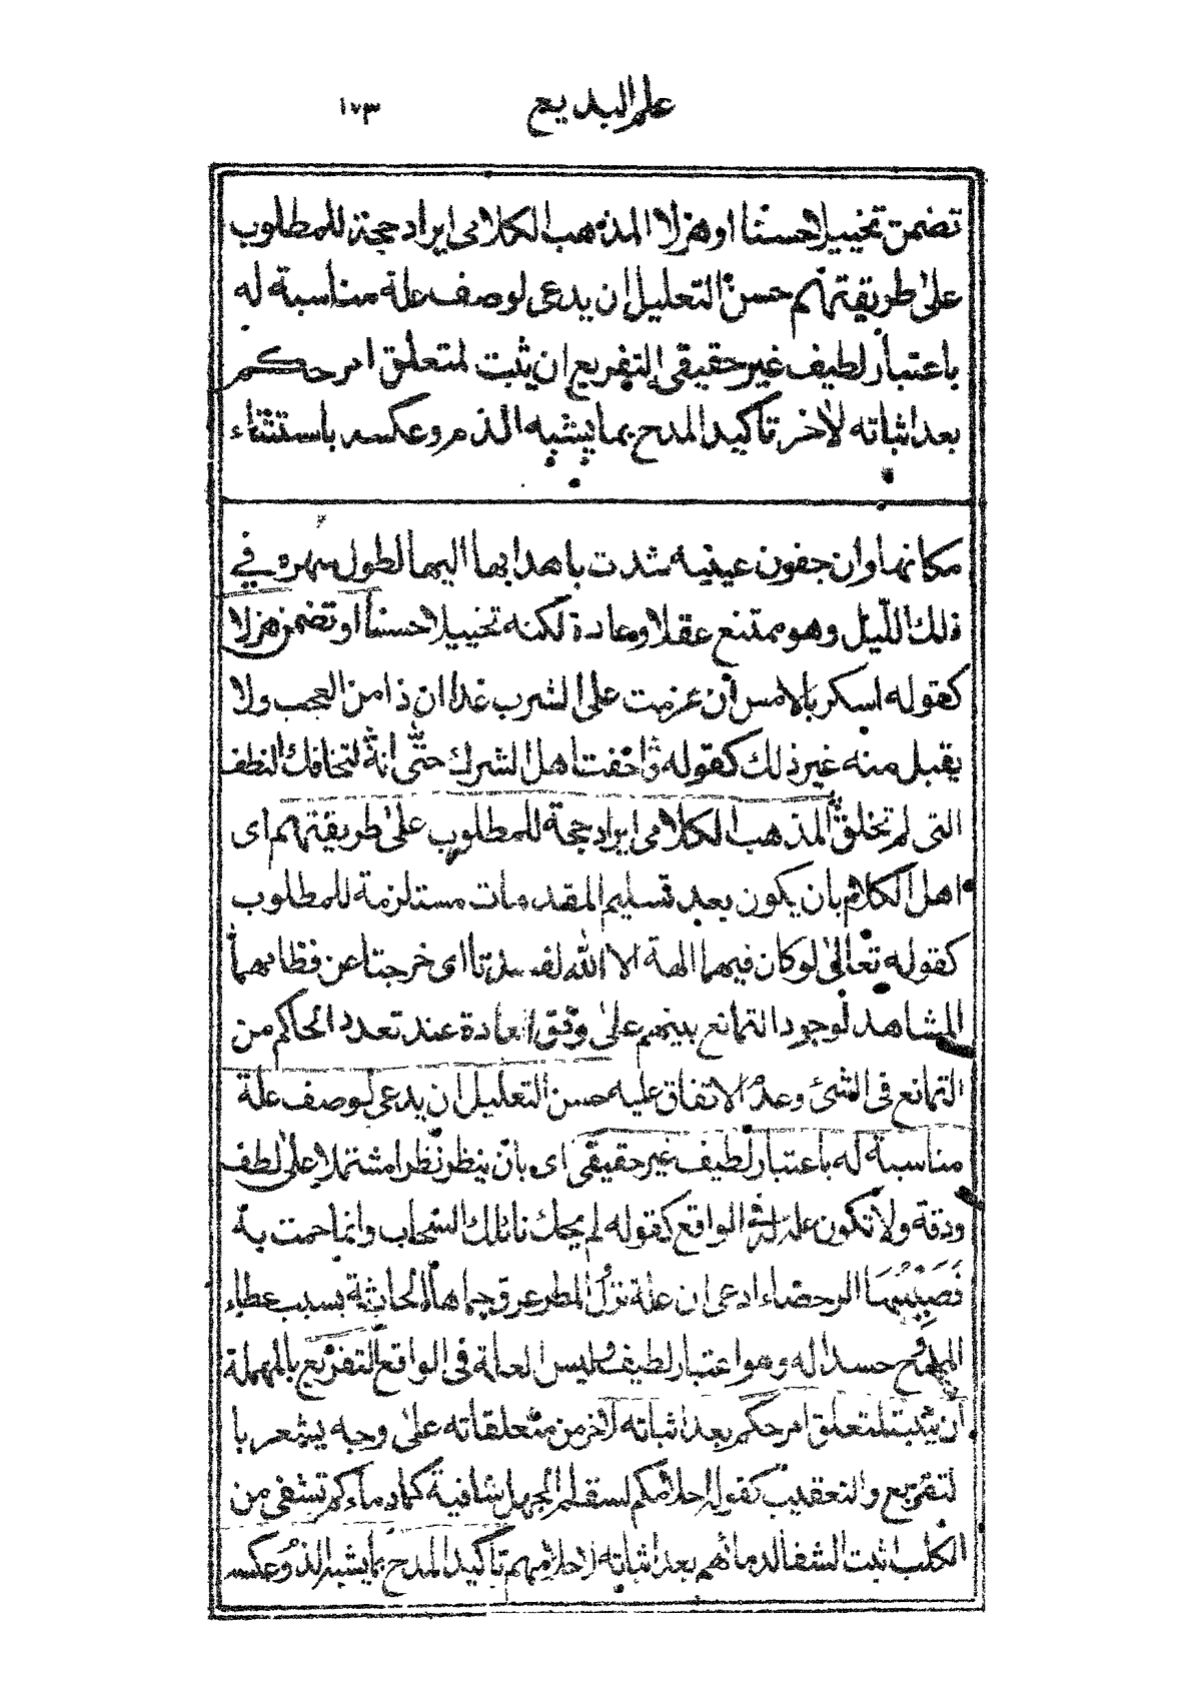 علم البديع ١٧٣
تضمن تخييلا حسنا او هزلا المذهب الكلامى ايراد حجة للمطلوب
على طريقتهم حسن التعليل ان يدعى لوصف علة مناسبة له
باعتبار لطيف غير حقيقى التفريع ان يثبت لمتعلق امر حكم
بعد اثباته لاخر تاكيد المدح بما يشبه الذم وعكسه باستثناء
مكانها وان جفون عينيه شدت باهدابها اليها لطول سهره في
ذلك الليل وهو ممتنع عقلا وعادة لكنه تخييلا حسنا او تضمن هزلا
كقوله اسكر بالامس ان عزمت على الشرب غدا ان ذا من العجب ولا
يقبل منه غير ذلك كقوله واخفت اهل الشرك حتى انه لتخافك النطف
التى لم تخلق المذهب الكلامى ايراد حجة للمطلوب على طريقتهم اى
اهل الكلام بان يكون بعد تسليم المقدمات مستلزمة للمطلوب
كقوله تعالى لو كان فيهما الهة الا الله لفسدتا اى خرجتا عن نظامهما
المشاهد لوجود التمانع بينهم على وفق العادة عند تعدد الحاكم من
التمانع فى الشئ وعدم الاتفاق عليه حسن التعليل ان يدعى لوصف علة
مناسبة له باعتبار لطيف غير حقيقى اى بان ينظر نظرا مشتملا على لطف
ودقة ولا تكون علة له فى الواقع كقوله لم يحك نائلك السحاب وانما حمت به
فصبيبها الرحضاء ادعى ان علة نزول المطر عرق حماها الحادثة بسبب عطاء
الممدوح حسدا له وهو اعتبار لطيف وليس العلة فى الواقع التفريع بالمهملة
ان يثبت لمتعلق امر حكم بعد اثباته لاخر من متعلقاته على وجه يشعر با
لتفريع والتعقيب كقوله احلامكم لسقام الجهل شافية كما دماءكم تشفى من
الكلب اثبت الشفا لدمائهم بعد اثباته لاحلامهم تاكيد المدح بما يشبه الذم وعكسه